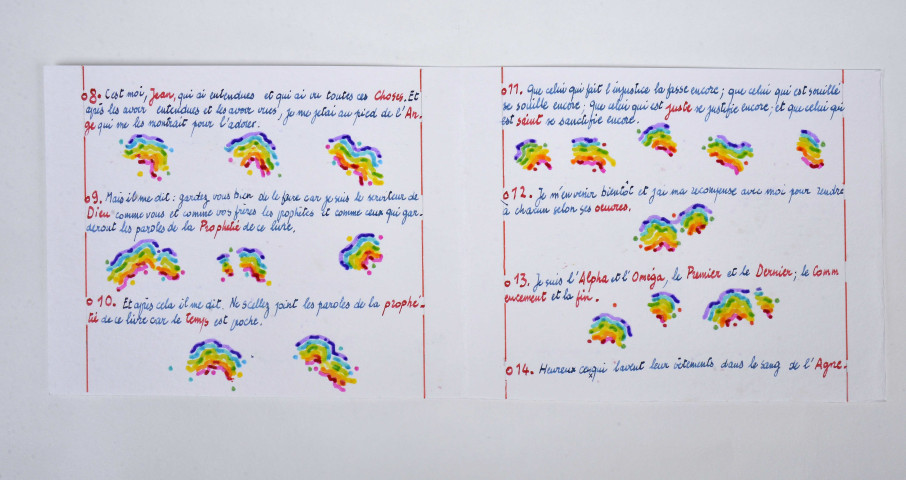 08. C'est moi, Jean, qui ai entendues et qui ai vu toutes ces Choses. Et
après les avoir entendues et les avoir vues, je me jetai au pied de l'An-
ge qui me les montrait pour l'adorer.
09. Mais il me dit: gardez vous bien de le faire car je suis le serviteur de
Dieu comme vous et comme vos frères les prophètes et comme ceux qui gar-
deront les paroles de la Prophetie de ce livre.
010. Et après cela il me dit. Ne scellez point les paroles de la prophé-
tie de ce livre car le temps est proche.
011. Que celui qui fait l'injustice la fasse encore; que celui qui est souillé
se souille encore; Que celui qui est juste se justifie encore; et que celui qui
est saint se sanctifie encore.
012. Je m'en venir bientôt et j'ai ma recompense avec moi pour rendre
à chacun selon ses oeuvres.
013. Je suis l'Alpha et l'Oméga, le Premier et le Dernier; le Comm
encement et la fin.
014. Heureux ceux qui lavent leur vêtements dans le sang de l'Agne-